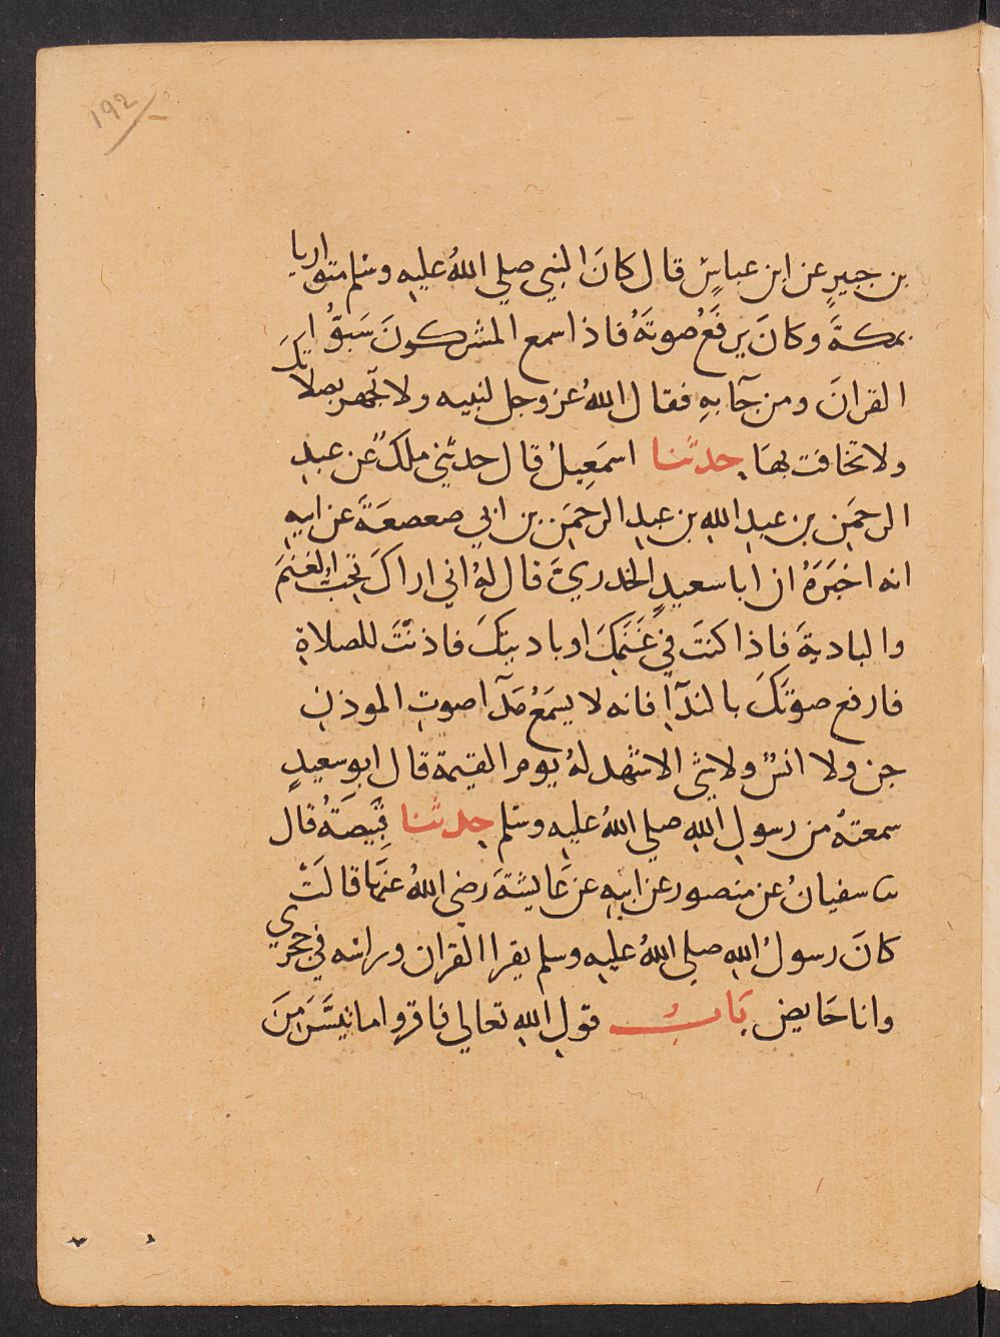 192
بن جبيرٍ عن ابن عباسٍ قال كانَ النبي صلي اللهُ عليهِ وسلم متواريا
بمكةَ وكانَ يرفَعُ صوتَهُ فاذا سمع المشركونَ سَبُّوا
القرانَ ومن جآ بهِ فقال اللهُ عز وجل لنبيه ولا تجهر بصلاتكَ
ولا تخافت بهَا حدثنا اسمَعِيلُ قال حدثني ملكٌ عن عبدِ
الرحمَنِ بن عبدِ اللهِ بن عبدِ الرحمَنِ بن ابي صعصعَةَ عن ابيهِ
انه اخبَرَهُ ان ابا سعيدٍ الخدريَّ قال لهُ اني اراكَ تحبُّ الغنمَ
والباديةَ فاذا كنتَ في غَنَمِكَ او باديتكَ فاذنْتَ للصلاةِ
فارفع صوتَكَ بالندآءِ فانه لا يسمَعُ مَدَآ صوتِ الموذنِ
جن ولا انسٌ ولا شي الا شهد لهُ يوم القيمة قال ابو سعيدٍ
سمعتهُ من رسولِ اللهِ صلي اللهُ عليهِ وسلم حدثنا قَبِيصَةُ قال
ثنا سفيانُ عن منصور عن امِّهِ عن عَايشَةَ رضي اللهُ عنهَا قالَتْ
كانَ رسولُ اللهِ صلي اللهُ عليهِ وسلم يقرا القران وراسه في حجري
وانا حَايض بَابُ قولِ اللهِ تعالي فاقروا ما تيسَّرَ مِنَ